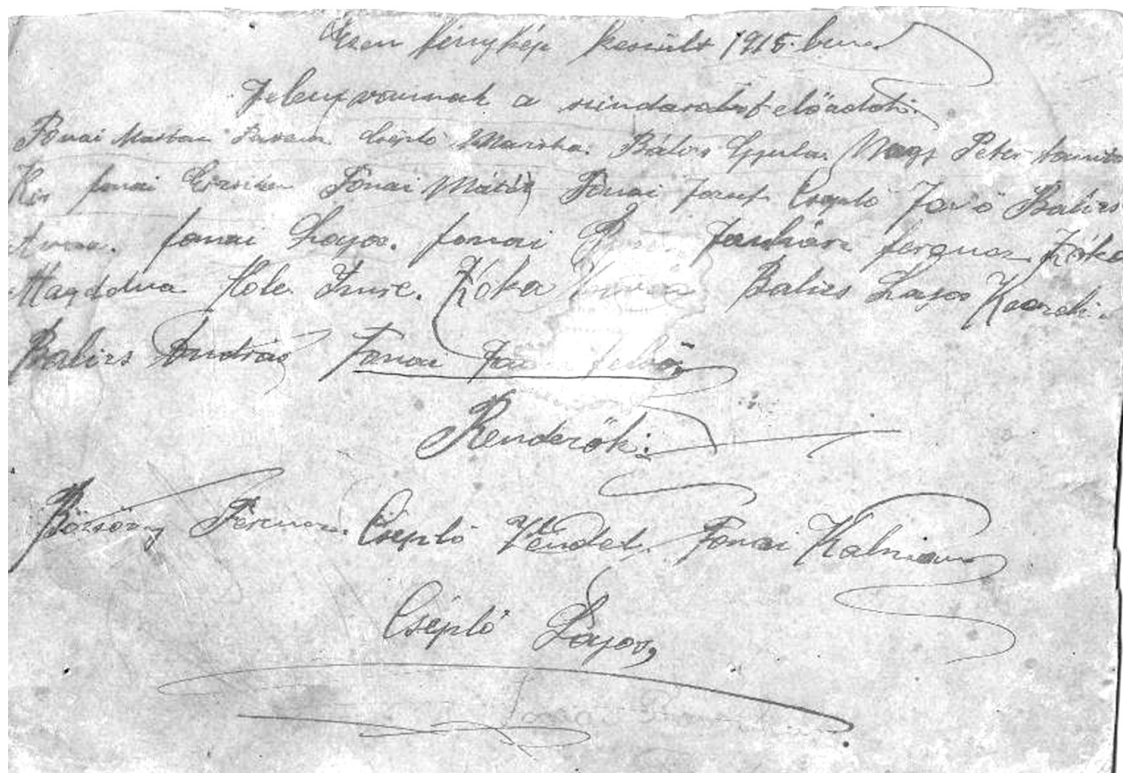 Ezen fénykép készült 1915.ben.
Jelen vannak a szindarabot előadók.
Fónai Cséplő Mariska. Bálizs Gyula. Nagy Péter tanító
Kis fonai Fónai Mátás Fónai József Cséplő Jenő Balizs
Anna. fonai Lajos. fonai ferencz Kóka
Magdolna Imre. Kóka Balizs Lajos
Balizs András Fonai
Rendezők:
Börsöny Ferencz. Cséplő Vendel. Fonai Kalmann
Cséplő Lajos,